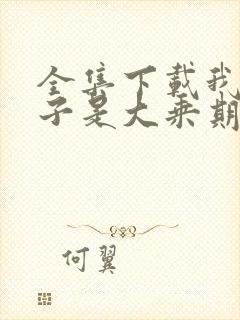 全集下载我
子是大乘期
何翼